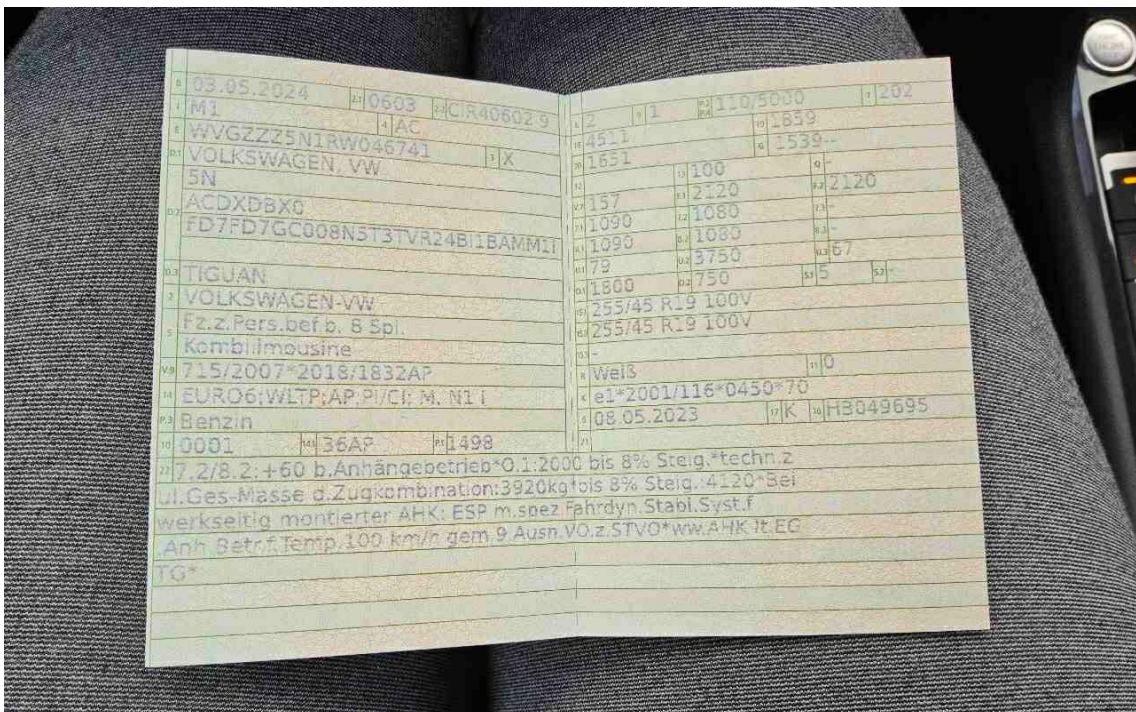 B 03.05.2024 2.1 0603 2.2 CIR40602 9
J M1 4 AC
E WVGZZZ5N1RW046741 3 X
D.1 VOLKSWAGEN, VW
5N
D.2 ACDXDBX0
FD7FD7GC008N5T3TVR24BI1BAMM1I
D.3 TIGUAN
2 VOLKSWAGEN-VW
5 Fz.z.Pers.bef.b. 8 Spl.
Kombilimousine
V.9 715/2007*2018/1832AP
14 EURO6;WLTP;AP;PI/CI; M, N1 I
P.3 Benzin
10 0001 14.1 36AP P.1 1498
L 2 9 1 P.2 P.4 110/5000 T 202
18 4511 19 1859
20 1651 G 1539--
12 13 100 Q -
V.7 157 F.1 2120 F.2 2120
7.1 1090 7.2 1080 7.3 -
8.1 1090 8.2 1080 8.3 -
U.1 79 U.2 3750 U.3 67
O.1 1800 O.2 750 S.1 5 S.2 -
15.1 255/45 R19 100V
15.2 255/45 R19 100V
15.3 -
R Weiß 11 0
K e1*2001/116*0450*70
6 08.05.2023 17 K 16 HB049695
21
22 7.2/8.2:+60 b.Anhängebetrieb*O.1:2000 bis 8% Steig.*techn.z
ul.Ges-Masse d.Zugkombination:3920kg*bis 8% Steig.:4120*Bei
werkseitig montierter AHK: ESP m.spez.Fahrdyn.Stabi.Syst.f
.Anh.Betr.f.Temp.100 km/h gem.9.Ausn.VO.z.STVO*ww.AHK lt.EG
TG*